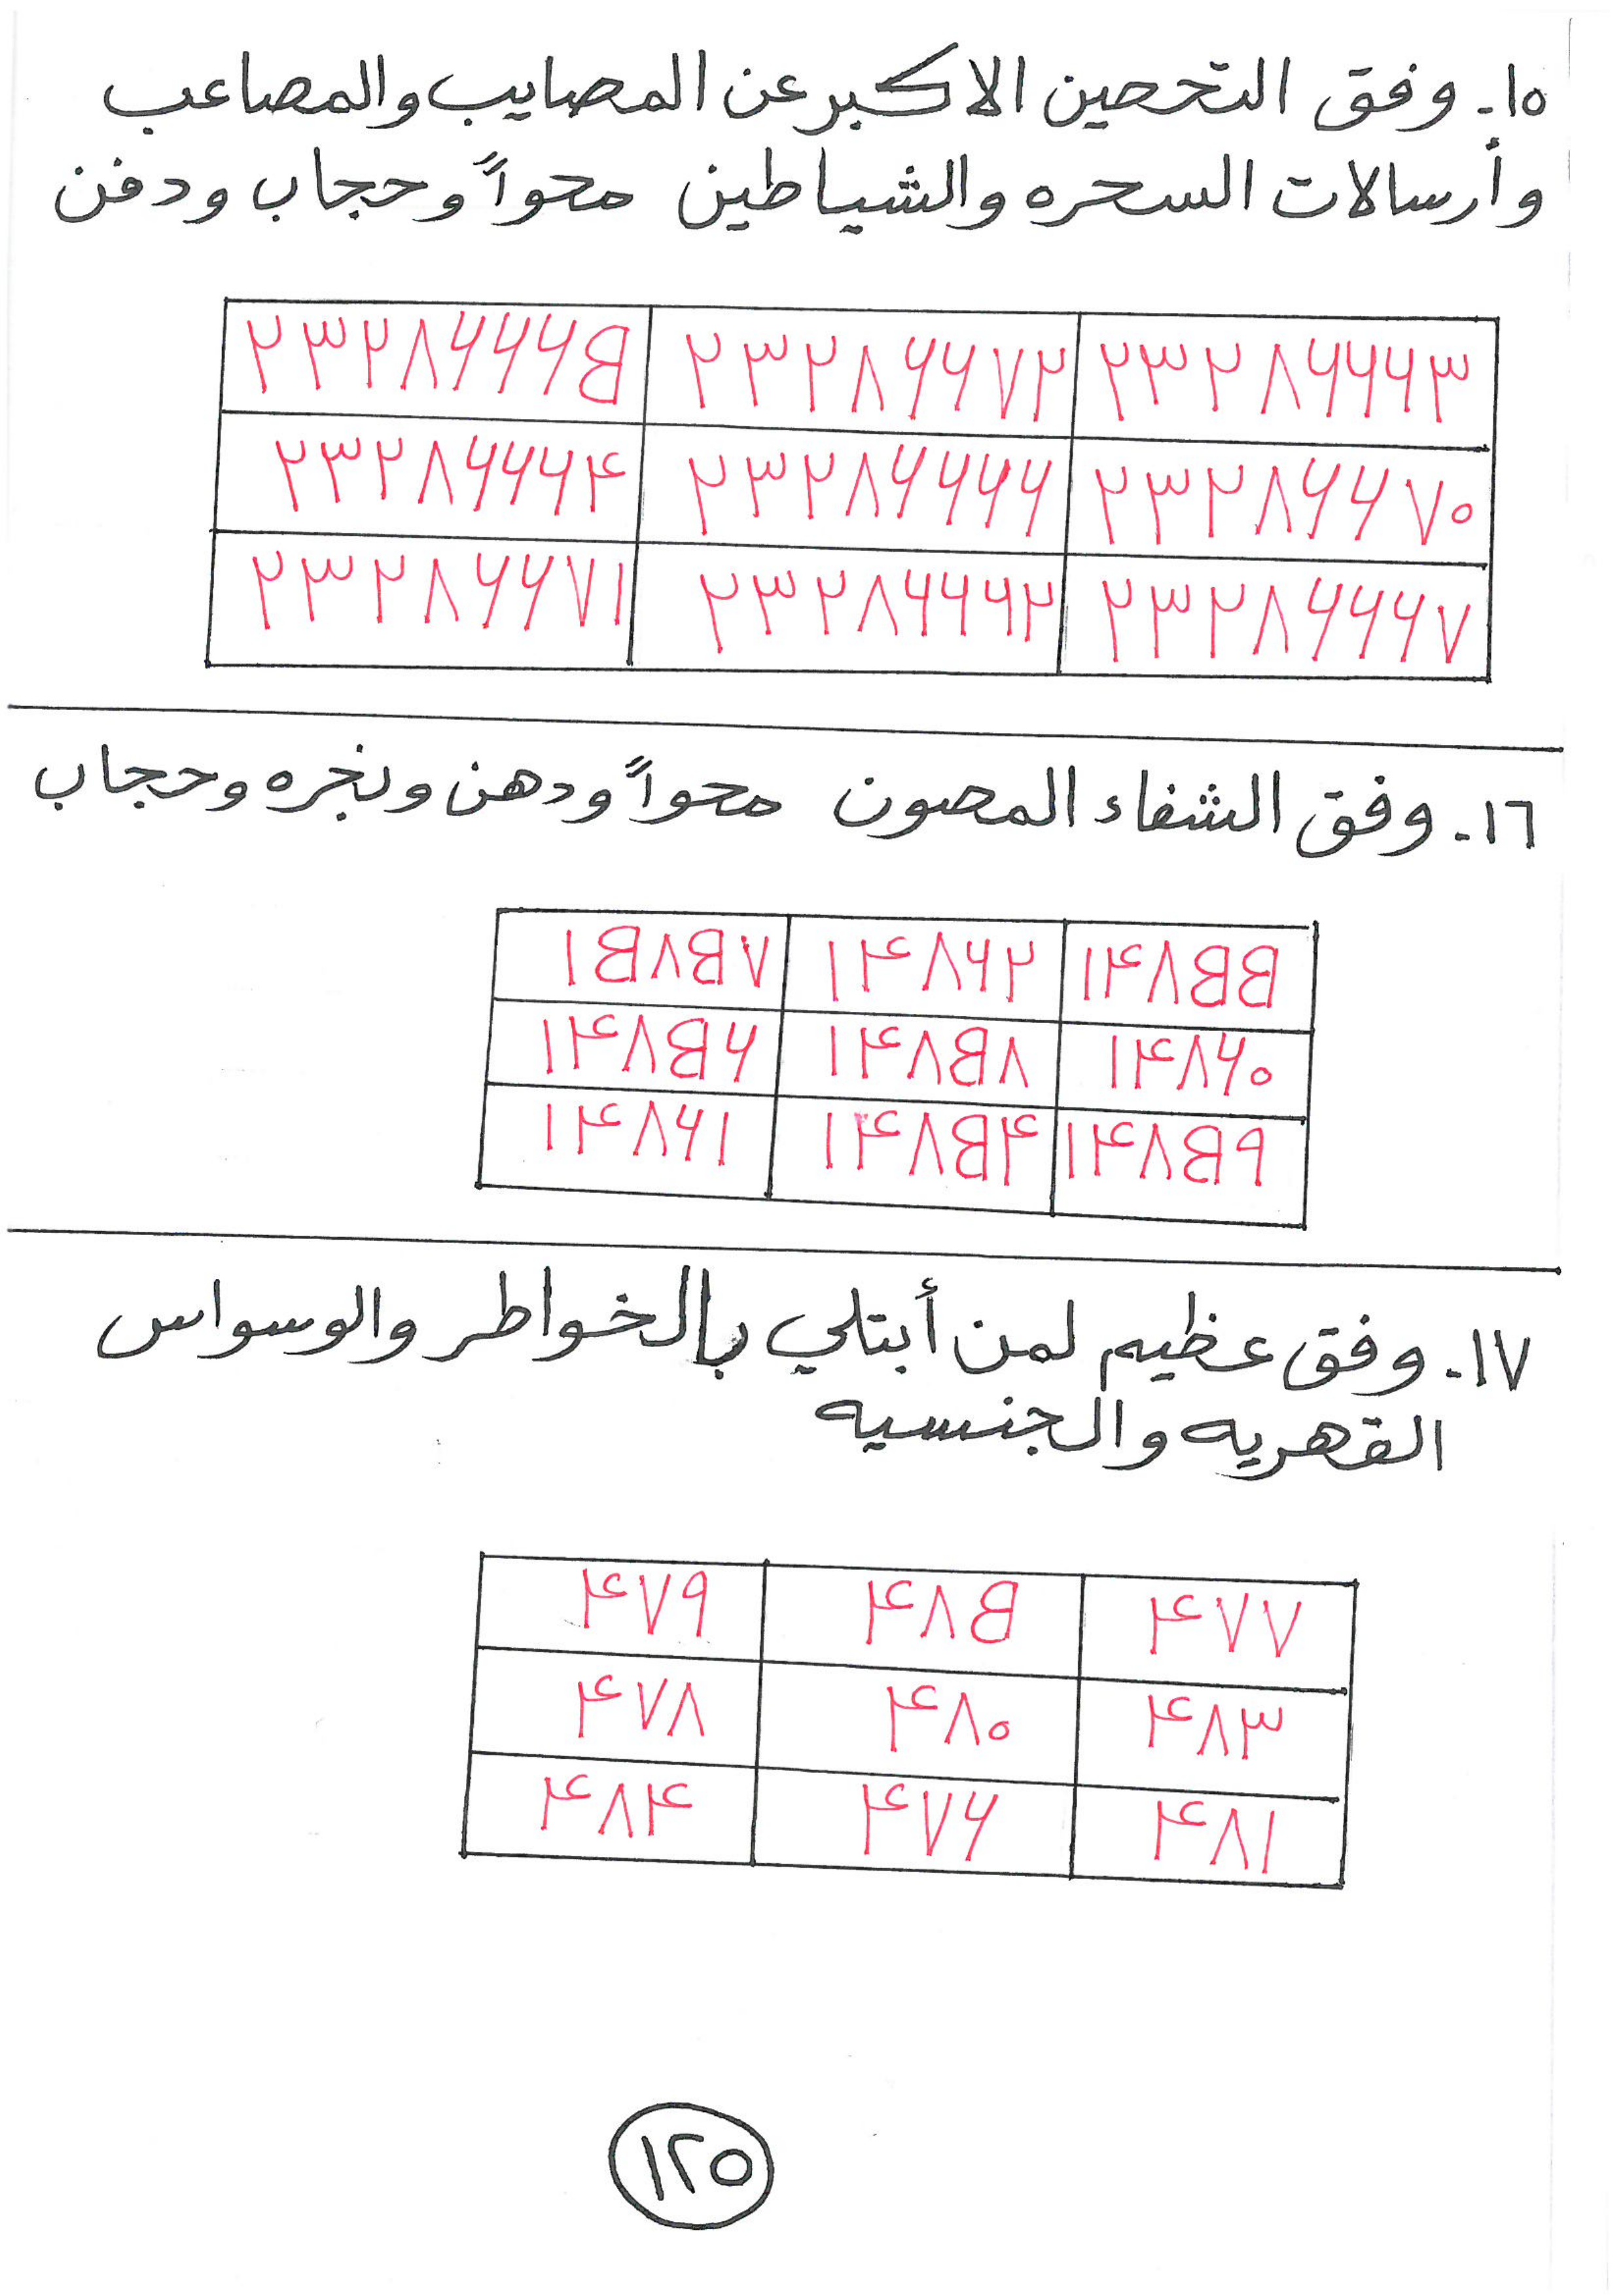 ١٥- وفق التحصين الاكبر عن المصايب والمصاعب
وأرسالات السحره والشياطين محواً وحجاب ودفن
٢٣٢٨٦٦٦٣ ٢٣٢٨٦٦٧٢ ٢٣٢٨٦٦٦٥
٢٣٢٨٦٦٧٠ ٢٣٢٨٦٦٦٦ ٢٣٢٨٦٦٦٤
٢٣٢٨٦٦٦٧ ٢٣٢٨٦٦٦٢ ٢٣٢٨٦٦٧١
١٦- وفق الشفاء المصون محواً ودهن وبخره وحجاب
١٤٨٥٥ ١٤٨٦٢ ١٥٨٥٧
١٤٨٦٠ ١٤٨٥٨ ١٤٨٥٦
١٤٨٥٩ ١٤٨٥٤ ١٤٨٦١
١٧- وفق عظيم لمن أبتلي بالخواطر والوسواس
القهريه والجنسيه
٤٧٧ ٤٨٥ ٤٧٩
٤٨٣ ٤٨٠ ٤٧٨
٤٨١ ٤٧٦ ٤٨٤
١٢٥